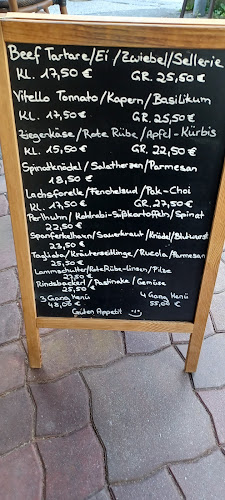 Beef Tartare/Ei/Zwiebel/Sellerie
KL. 17,50 € GR. 25,50 €
Vitello Tomnato/Kapern/Basilikum
KL. 17,50 € GR. 25,50 €
Ziegenkäse/Rote Rübe/Apfel-Kürbis
KL. 15,50 € GR. 22,50 €
Spinatknödel/Salatherzen/Parmesan
18,50 €
Lachsforelle/Fenchelsud/Pak-Choi
KL. 17,50 € GR. 27,50 €
Perlhuhn/Kohlrabi-Süßkartoffeln/Spinat
22,50 €
Spanferkelhaxn/Sauerkraut/Knödel/Blutwurst
23,50 €
Tagliata/Kräuterseitlinge/Rucola/Parmesan
25,50 €
Lammschulter/Rote Rübe-Linsen/Pilze
27,50 €
Rindsbackerl/Pastinake/Gemüse
25,50 €
3 Gang Menü 4 Gang Menü
48,00 € 55,00 €
Guten Appetit